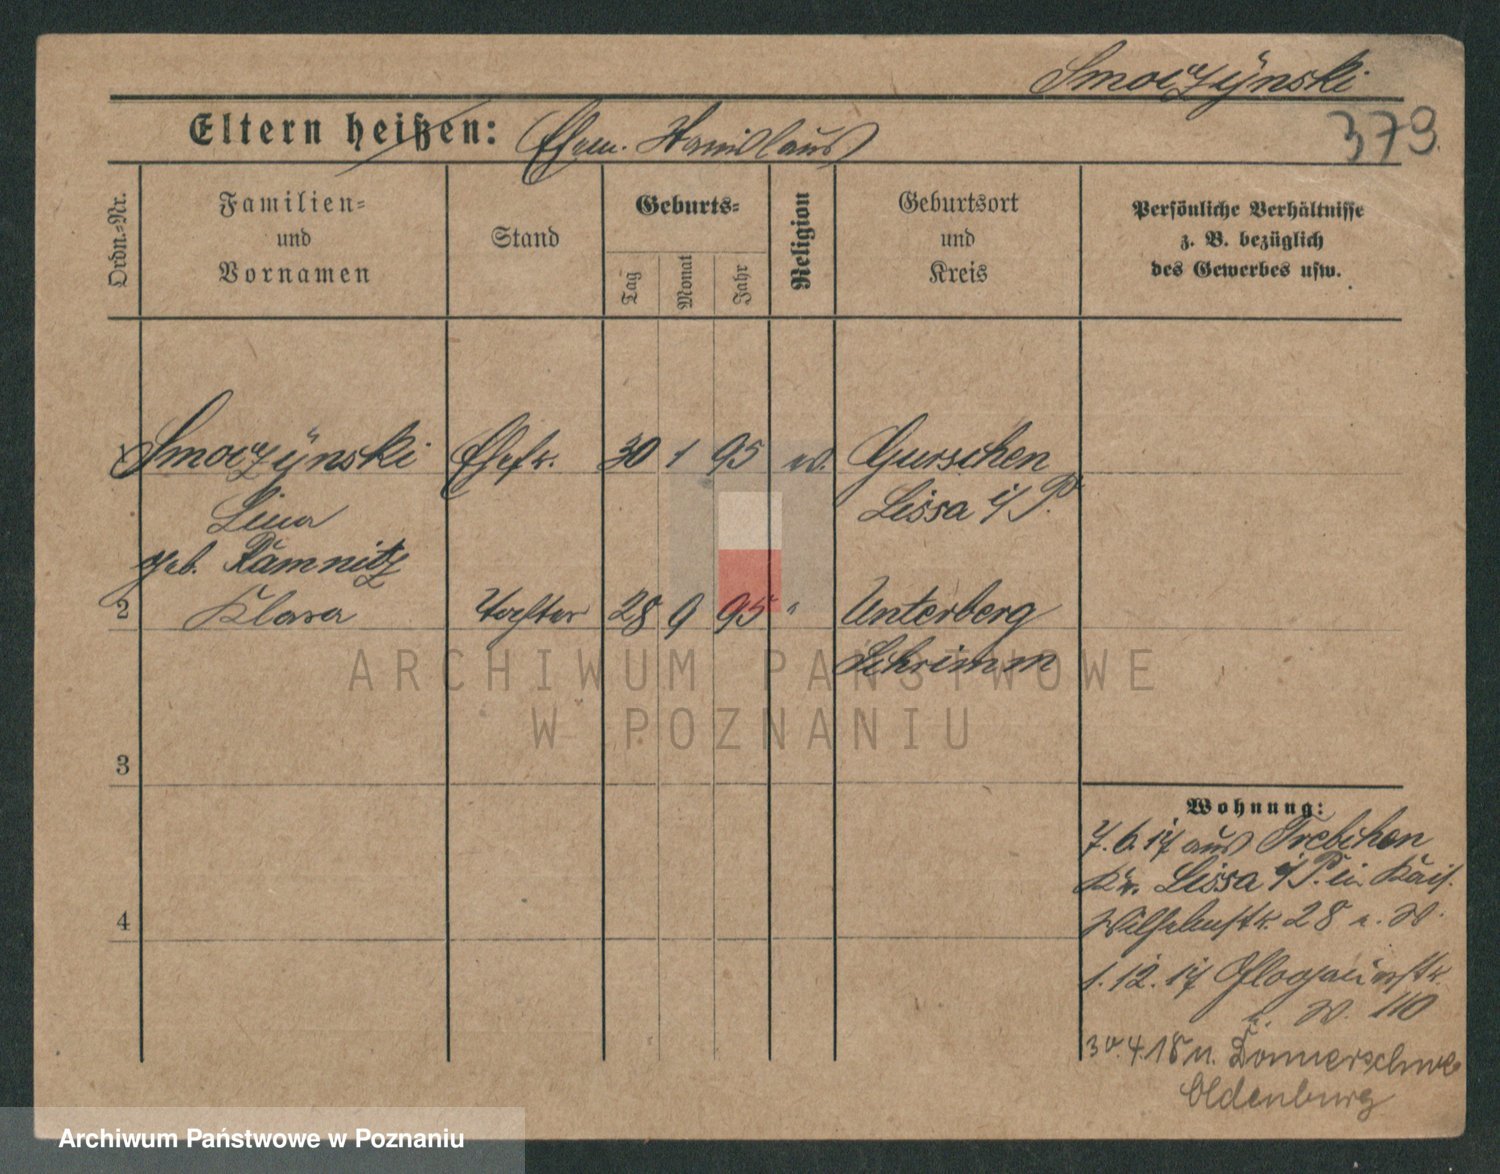 Smoczÿnski
379.
Eltern heißen: Ehem. Stanislaus
Ordn.-Nr.
Familien-
und
Vornamen
Stand
Geburts-
Tag
Monat
Jahr
Religion
Geburtsort
und
Kreis
Persönliche Verhältnisse
z. B. bezüglich
des Gewerbes usw.
1 Smoczÿnski Ehefr. 30 1 95 ev. Gurschen
Lina Lissa i/P.
geb. Kamnitz
2 Klara Tochter 28 9 95 " Unterberg
Schrimm
ARCHIWUM PAŃSTWOWE
W POZNANIU
3
Wohnung:
7.6.17 aus Trebchen
Kr. Lissa i/P. in Kais.
4
Wilhelmstr. 28 b. W.
1.12.17 Glogauerstr.
b. W. 110
30.4.18 n. Donnerschwe
Oldenburg
Archiwum Państwowe w Poznaniu